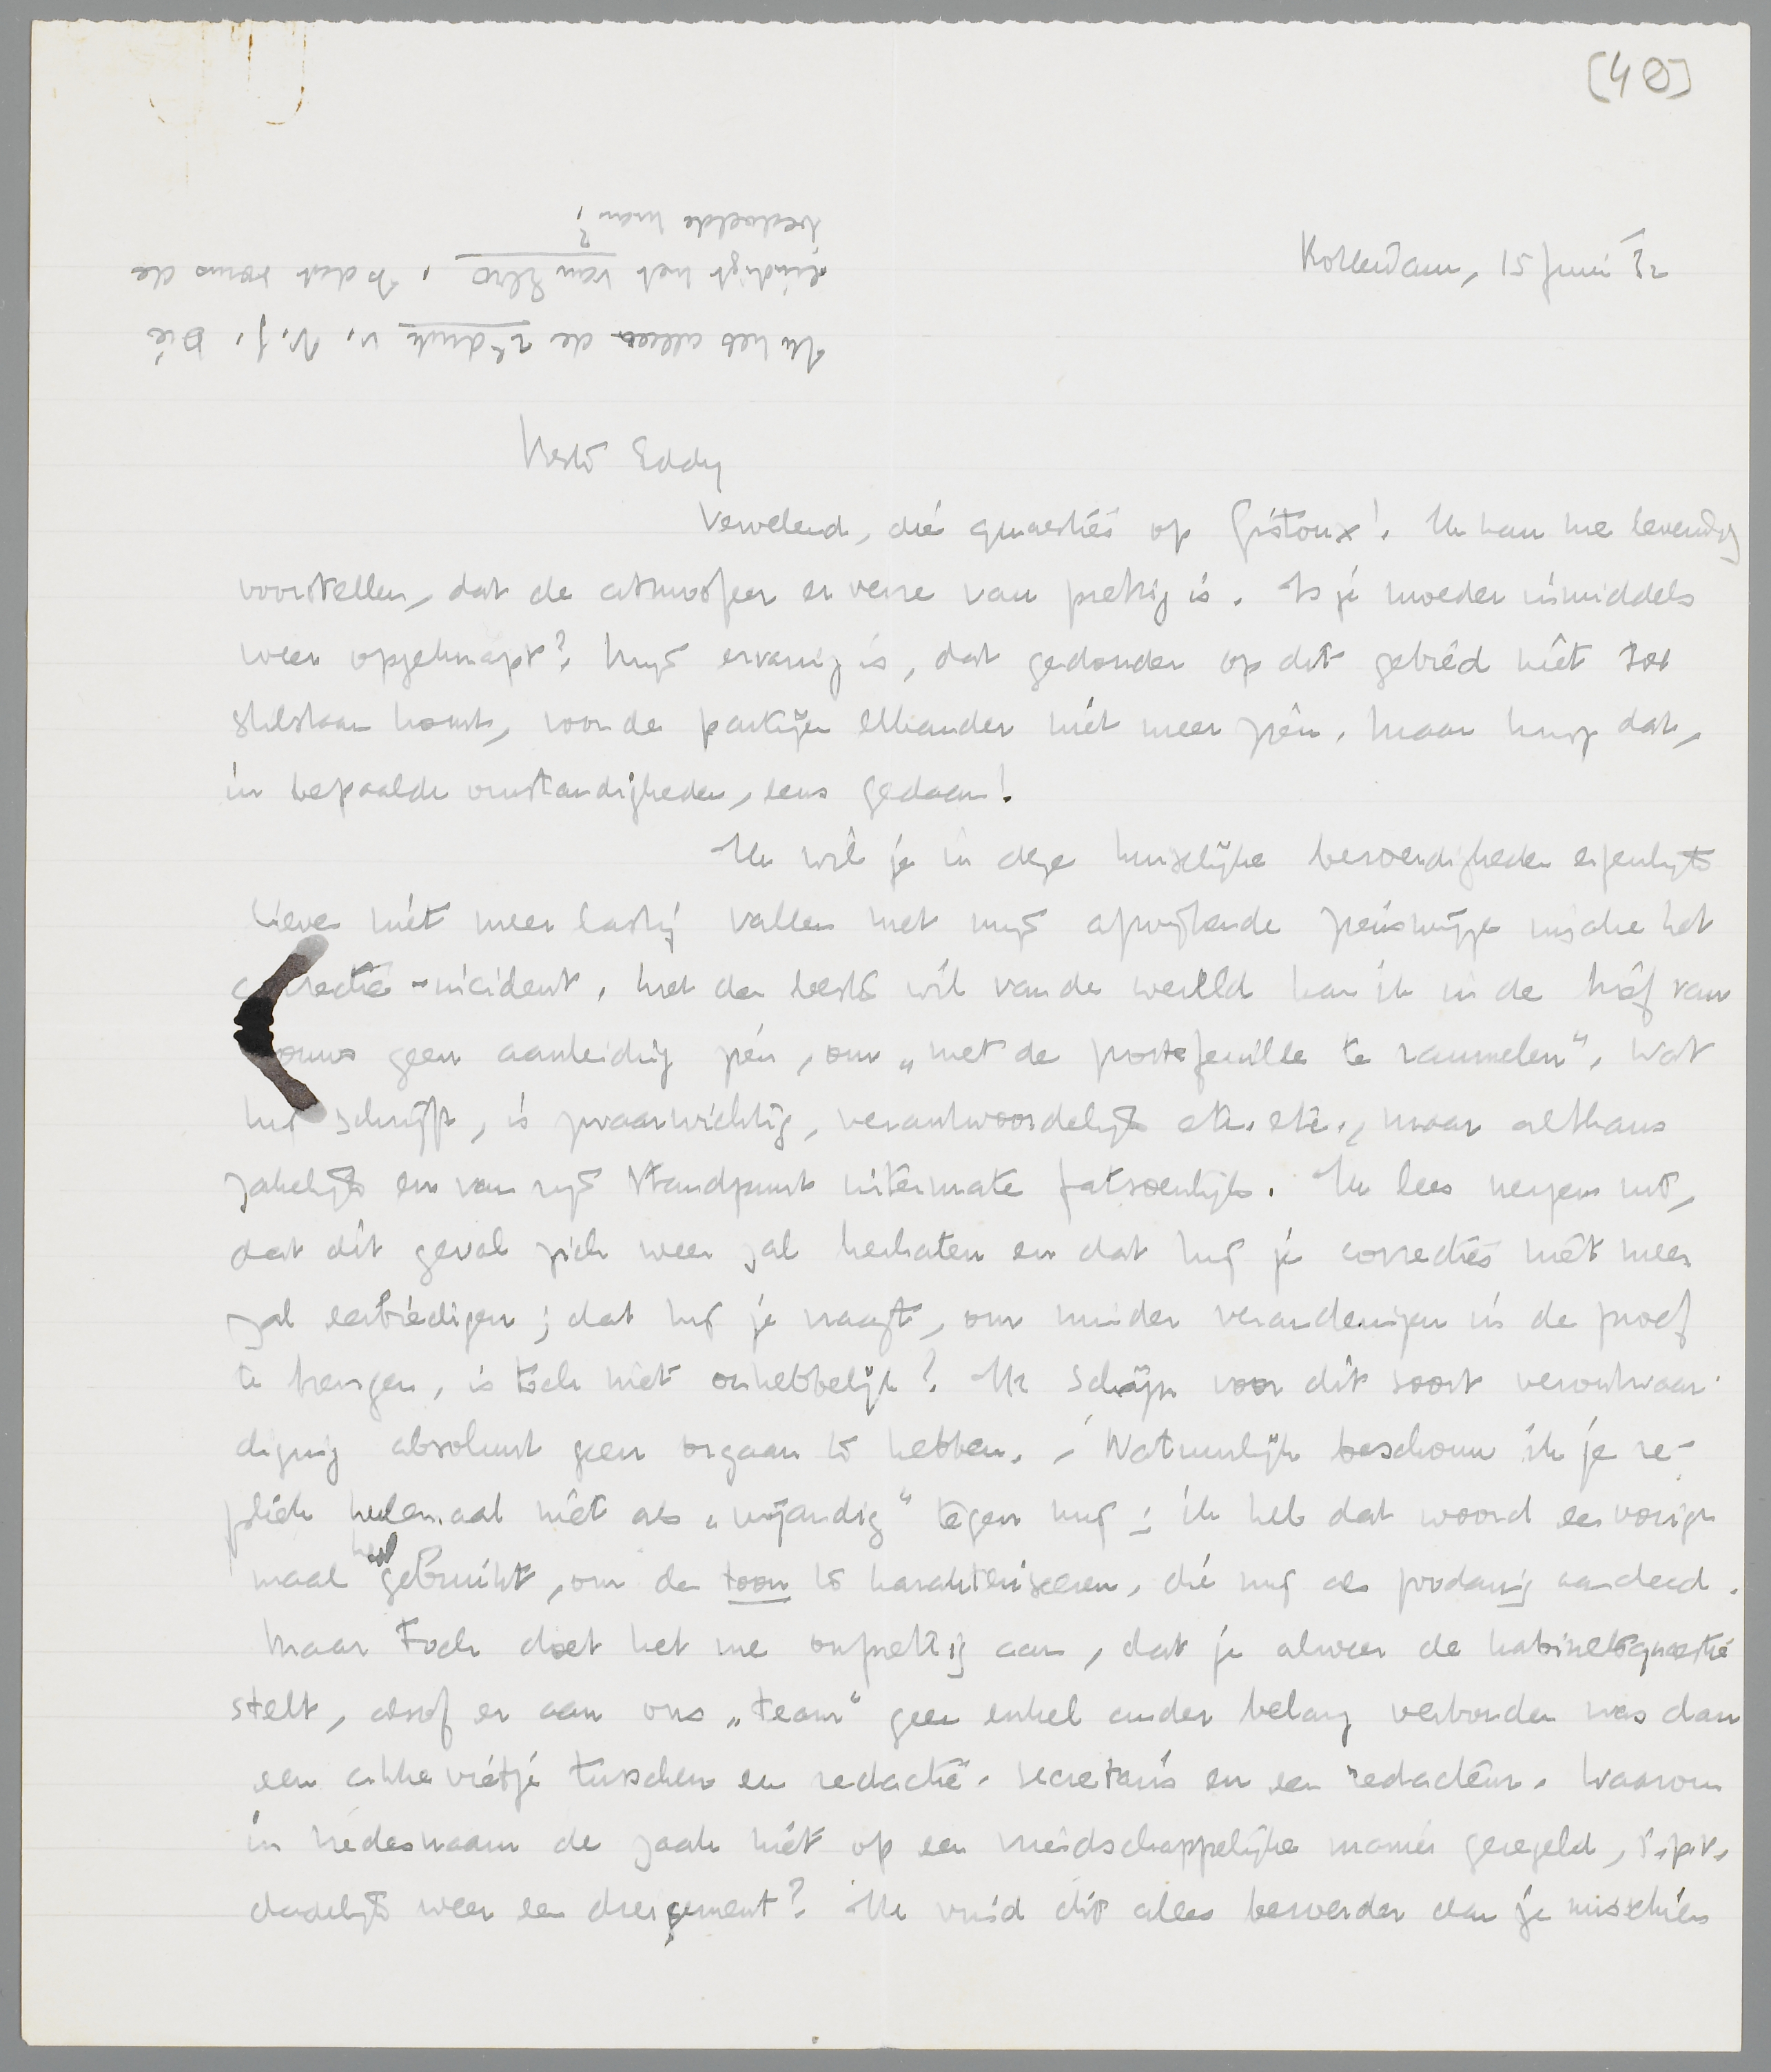 [40]
Rotterdam, 15 Juni '32
Ik heb alleen de 2e druk v. N.J. Die
eindigt met van Elro. Is dat soms de
bedoelde man?
Beste Eddy
Vervelend, die quaesties op Gistoux! Ik kan me levendig
voorstellen, dat de atmosfeer er verre van prettig is. Is je moeder inmiddels
weer opgeknapt? Mijn ervaring is, dat gedonder op dit gebied niet tot
stilstaan komt, voor de partijen elkander niet meer zien. Maar krijg dat,
in bepaalde omstandigheden, eens gedaan!
Ik wil je in deze huiselijke beroerdigheden eigenlijk
liever niet meer lastig vallen met mijn afwijkende zienswijze inzake het
correctie-incident. Met den besten wil van de wereld kan ik in de brief van
Bouws geen aanleiding zien, om „met de portefeuille te rammelen". Wat
hij schrijft, is zwaarwichtig, verantwoordelijk etc. etc., maar althans
zakelijk en van zijn standpunt uitermate fatsoenlijk. Ik lees nergens uit,
dat dit geval zich weer zal herhalen en dat hij je correcties niet meer
zal eerbiedigen; dat hij je vraagt, om minder veranderingen in de proef
te brengen, is toch niet onhebbelijk? Ik schijn voor dit soort verontwaar-
diging absoluut geen orgaan te hebben. – Natuurlijk beschouw ik je re-
pliek heelemaal niet als „vijandig" tegen mij; ik heb dat woord een vorige
maal heel gebruikt, om den toon te karakteriseeren, die mij als zoodanig aandeed.
Maar toch doet het me onprettig aan, dat je alweer de kabinetsquaestie
stelt, alsof er aan ons „team" geen enkel ander belang verbonden was dan
een akkevietje tusschen een redactie-secretaris en een redacteur. Waarom
in vredesnaam de zaak niet op een vriendschappelijke manier geregeld, i.p.v.
dadelijk weer een dreigement? Ik vind dit alles beroerder dan je misschien